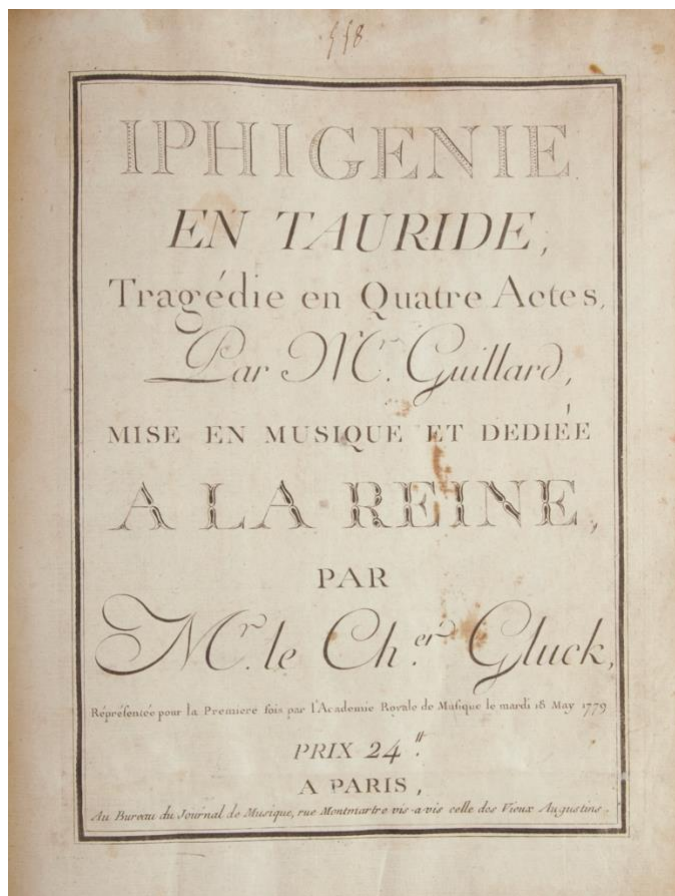 558
IPHIGENIE
EN TAURIDE,
Tragédie en Quatre Actes,
Par Mr. Guillard,
MISE EN MUSIQUE ET DEDIÉE
A LA REINE,
PAR
Mr. le Ch.er Gluck,
Répréfentée pour la Premiere fois par l'Academie Royale de Mufique le mardi 18 May 1779
PRIX 24.tt
A PARIS,
Au Bureau du Journal de Musique, rue Montmartre vis-a-vis celle des Vieux Augustins.